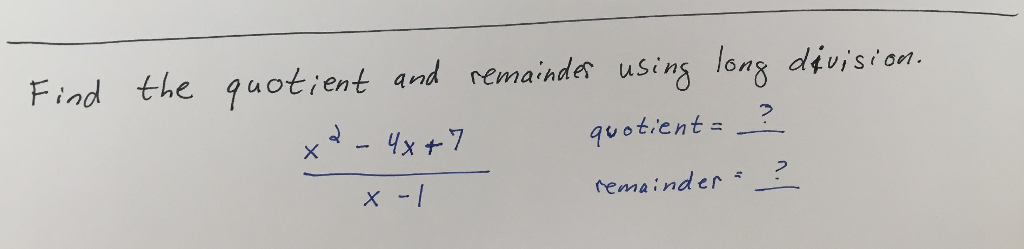 Find the quotient and remainder using long division.
x² - 4x + 7
x - 1
quotient = ?
remainder = ?